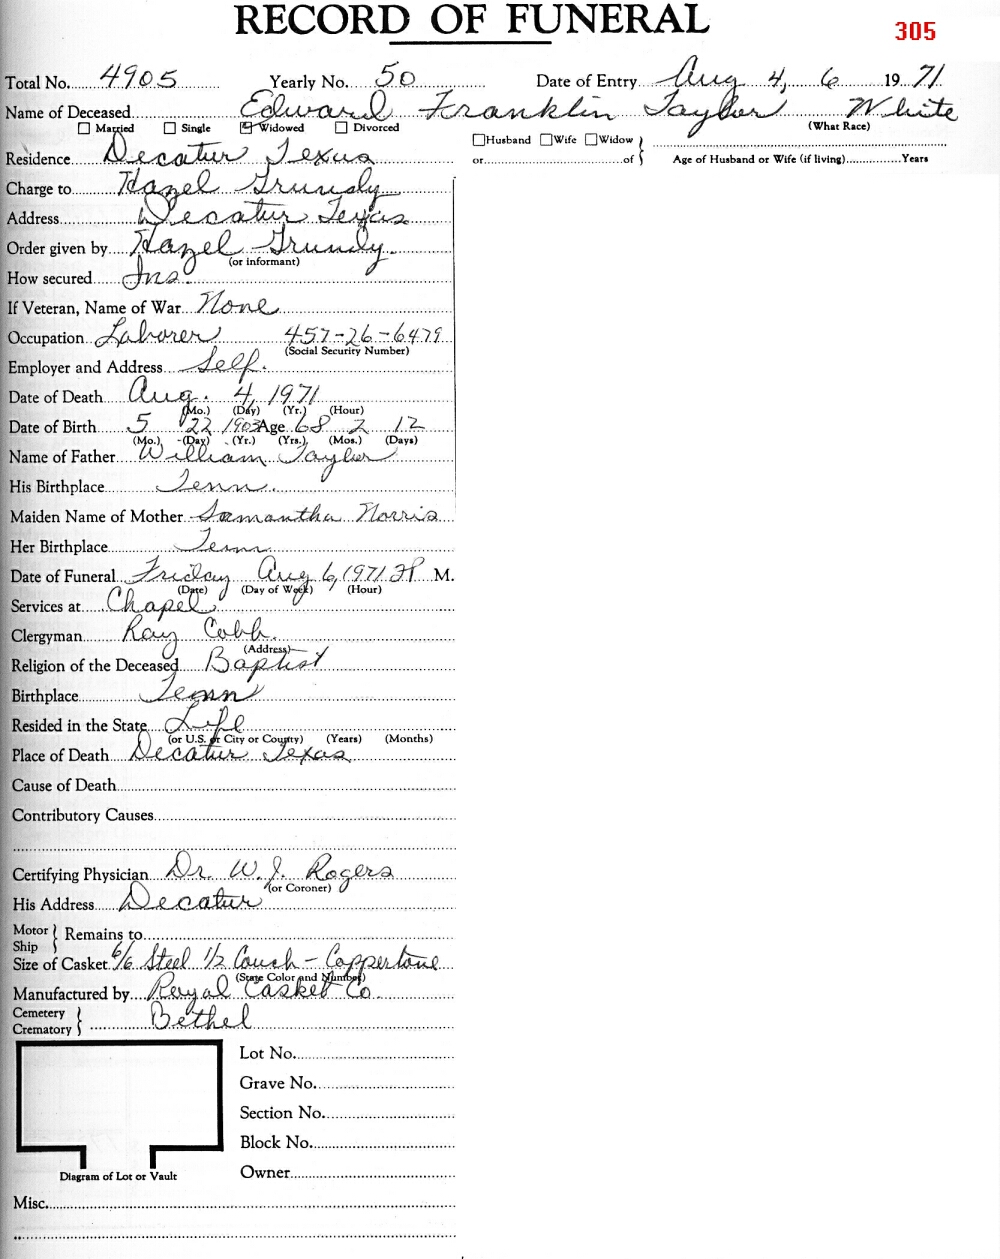 RECORD OF FUNERAL
305
Total No. 4905 Yearly No. 50 Date of Entry Aug 4, 6 1971
Name of Deceased Edward Franklin Taylor White
Married Single Widowed Divorced (What Race)
Husband Wife Widow
Residence Decatur Texas or of Age of Husband or Wife (if living) Years
Charge to Hazel Grundy
Address Decatur Texas
Order given by Hazel Grundy
(or informant)
How secured Ins.
If Veteran, Name of War None
Occupation Laborer 457-26-6479
(Social Security Number)
Employer and Address Self.
Date of Death Aug. 4, 1971
(Mo.) (Day) (Yr.) (Hour)
Date of Birth 5 22 1903 Age 68 2 12
(Mo.) (Day) (Yr.) (Yrs.) (Mos.) (Days)
Name of Father William Taylor
His Birthplace Tenn.
Maiden Name of Mother Samantha Norris
Her Birthplace Tenn
Date of Funeral Friday Aug 6, 1971 3 P M.
(Date) (Day of Week) (Hour)
Services at Chapel
Clergyman Ray Cobb.
(Address)
Religion of the Deceased Baptist
Birthplace Tenn
Resided in the State Life
(or U.S. or City or County) (Years) (Months)
Place of Death Decatur Texas
Cause of Death
Contributory Causes
Certifying Physician Dr. W. J. Rogers
(or Coroner)
His Address Decatur
Motor Ship Remains to
Size of Casket 6/6 Steel 1/2 Couch - Coppertone
(State Color and Number)
Manufactured by Royal Casket Co.
Cemetery Crematory Bethel
Lot No.
Grave No.
Section No.
Block No.
Owner
Diagram of Lot or Vault
Misc.